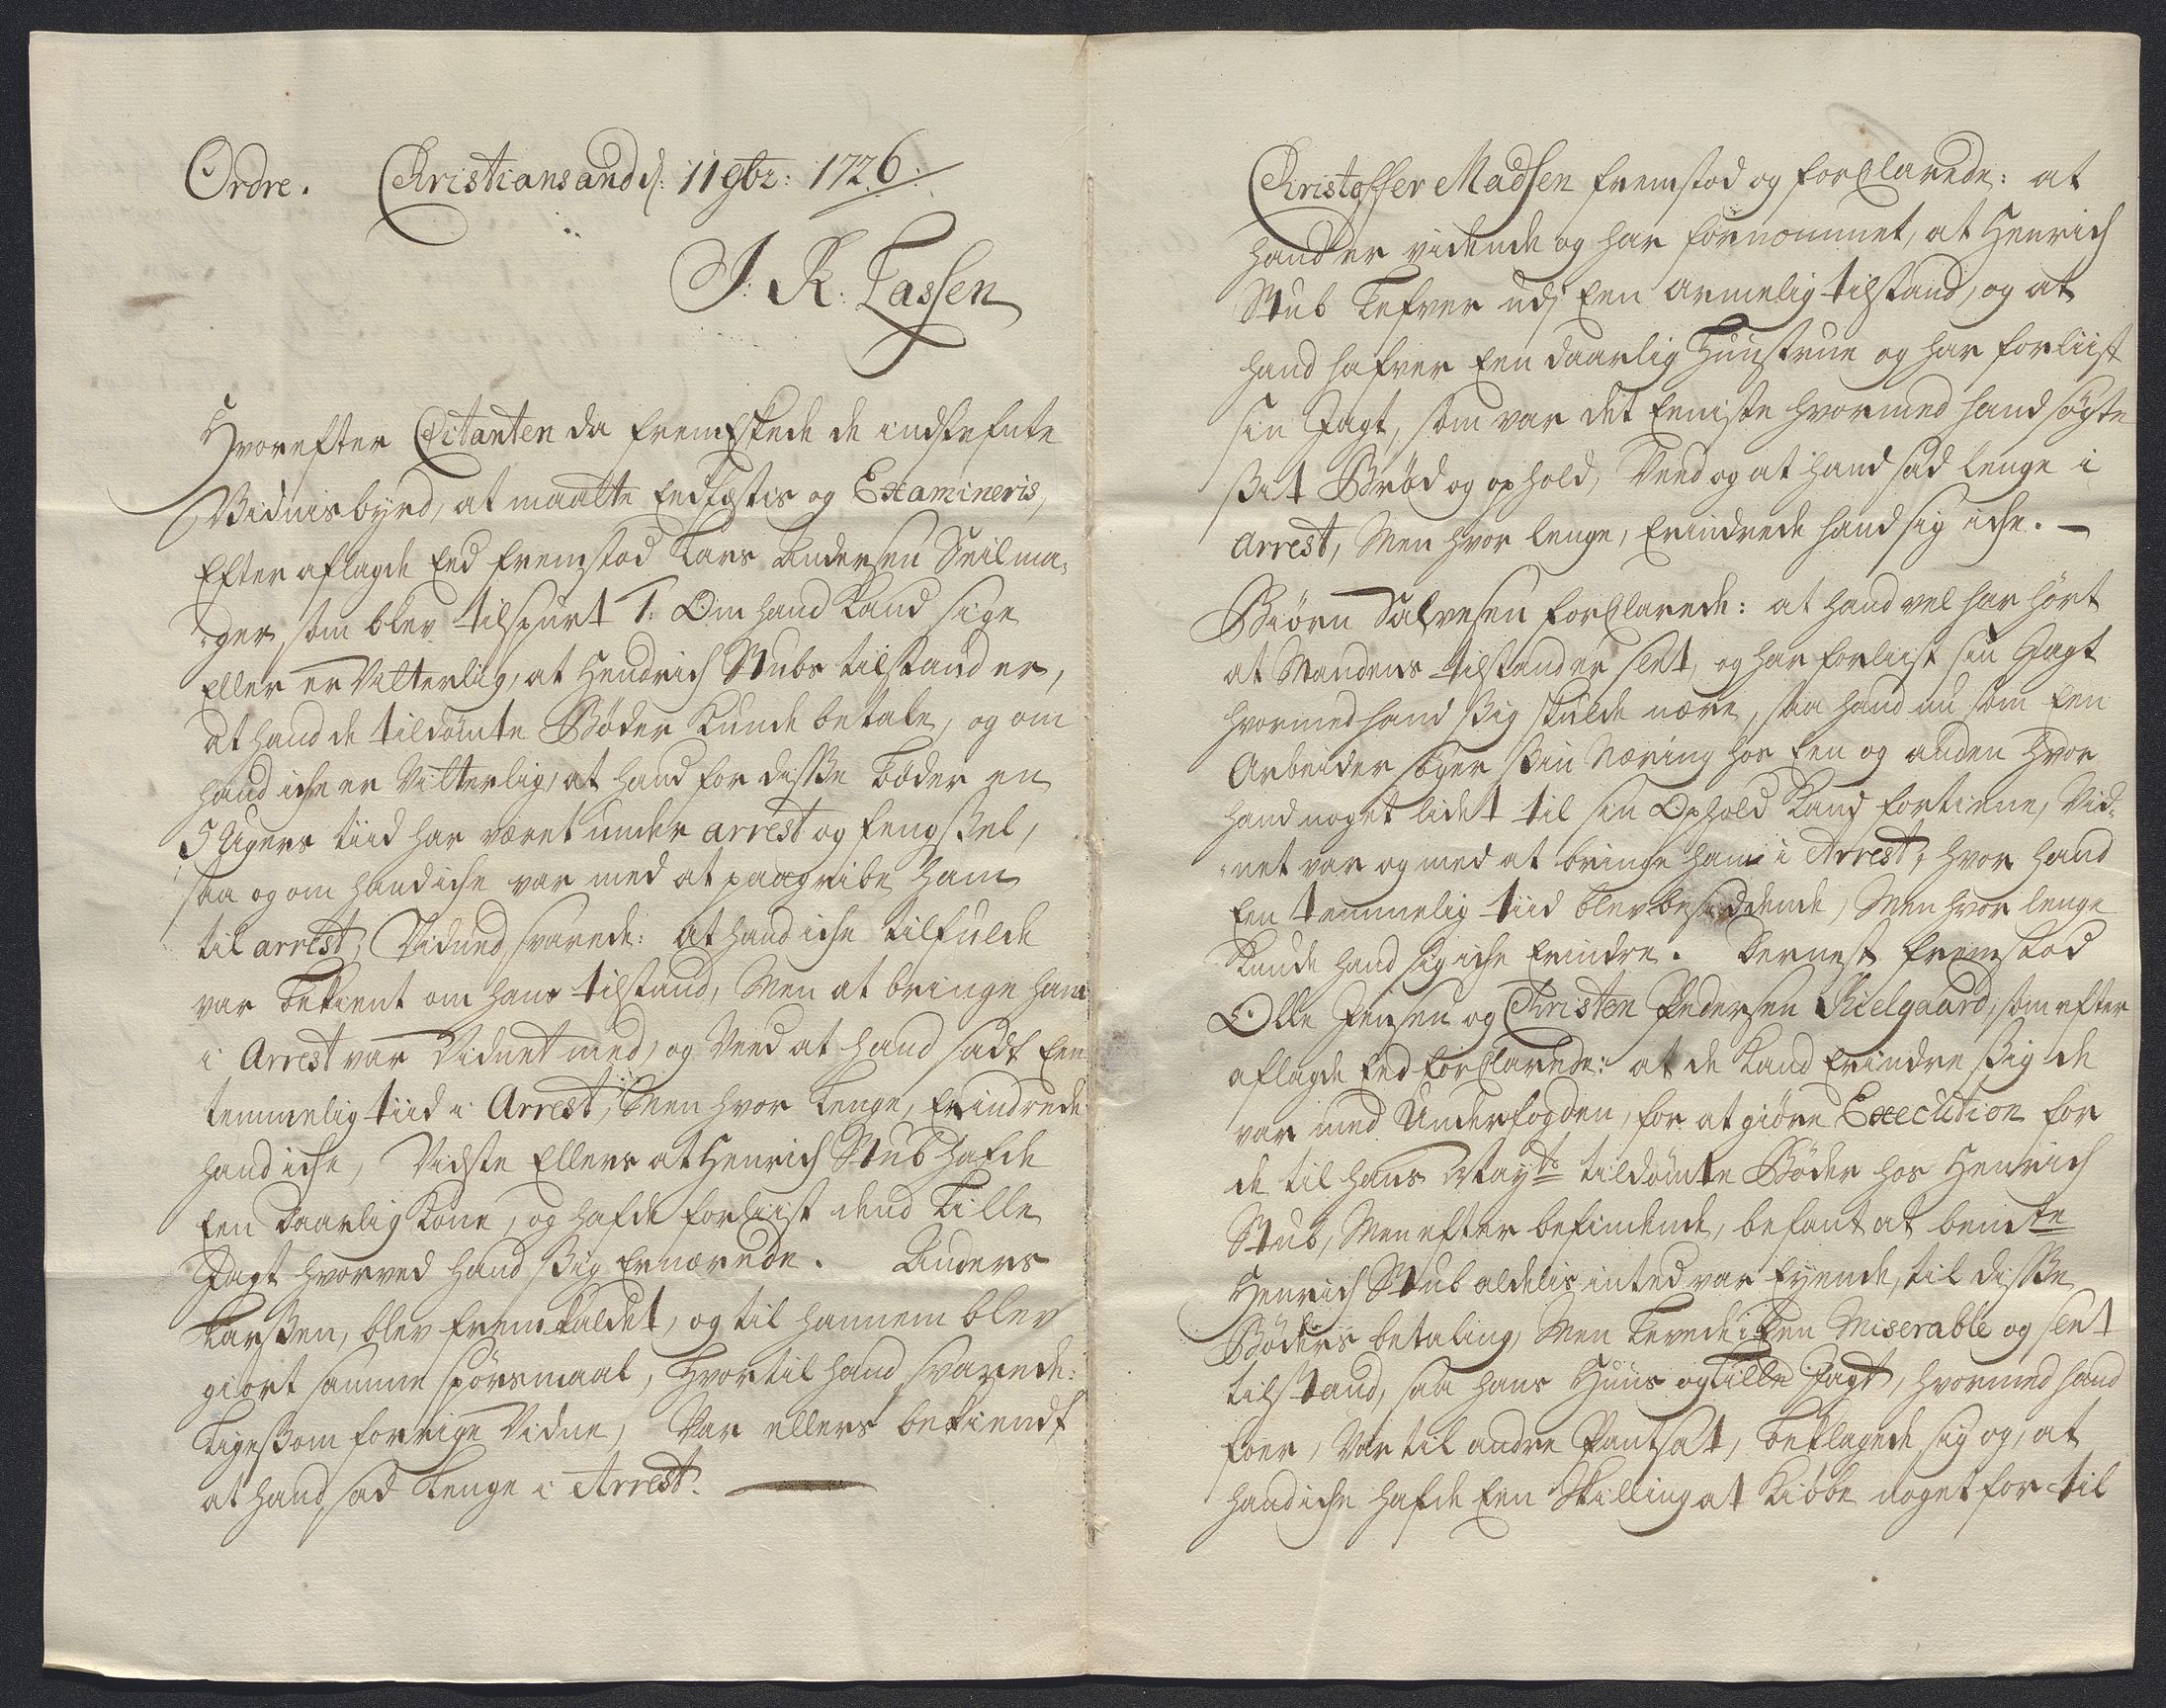 Ordre. Christiansand d: 11 9br: 1726.
J: R: Tassen
Hvorefter Citanten da fremeskede de indstefnte
Vidnisbyrd, at maatte Eedfæstis og Examineris,
Efter aflagde Eed fremstod Lars Andersen Seilma„
„ger, som blev tilspurt 1: Om hand kand sige
Eller er Vitterlig, at Hendrich Stubs tilstand er,
at hand de tildömte Böder kunde betale, og om
hand iche er Vitterlig, at hand for disse böder en
5 Ugers tiid har været under arrest og fengßel,
saa og om hand iche var med at paagribe ham
til arrest; Vidned svarede: at hand iche tilfulde
var bekient om hans tilstand, Men at bringe ham
i Arrest var Vidnet med, og Veed at hand sadt Een
temmelig tiid i Arrest, Men hvor lenge, Erindrede
hand iche, Vidste Ellers at Henrich Stub hafde
Een daarlig Kone, og hafde forliist dend lille
Jagt hvorved hand ßig Ernærede. Anders
Larßen, blev fremkaldet, og til hannem blev
giort samme spörsmaal, Hvortil hand svarede:
ligeßom forrige Vidne, Var ellers bekiendt
at hand sad lenge i Arrest.
Christoffer Madsen fremstod og forklarede: at
hand er vidende og har fornommet, at Henrich
Stub lefver udj Een armelig tilstand, og at
hand hafver Een daarlig Huustrue og har forliist
sin Jagt, som var det Eeniste hvormed hand sögte
ßit Bröd og ophold, Veed og at hand sad lenge i
arrest, Men hvor lenge, Erindrede hand sig iche.
Biörn Salvesen forklarede: at hand vel har hört
at Mandens tilstand er slet, og har forliist sin Jagt
hvormed hand ßig skulde nære, saa hand nu som Een
Arbeider söger ßin Næring hos Een og anden Hvor
hand noget lidet til sin Ophold kand fortiene, Vid„
„net var og med at bringe ham i Arrest, hvor hand
Een temmelig tiid blev besiddende, Men hvor lenge
kunde hand sig iche Erindre. Dernest fremstod
Olle Jensen og Christen Pedersen Kielgaard, som efter
aflagde Eed forklarede: at de kand Erindre ßig de
var med Underfogden, for at giöre Execution for
de til hans Mayts tildömte Böder hos Henrich
Stub, Men efter befindende, befant at bemte
Henrich Stub aldelis inted var Eyende, til disse
Böders betaling, Men levede i Een Miserable og slet
tilstand, saa hans Huus og lille Jagt, hvormed hand
foer, Var til andre Pantsat, beklagede sig og, at
hand iche hafde Een Skilling at kiöbe noget for til